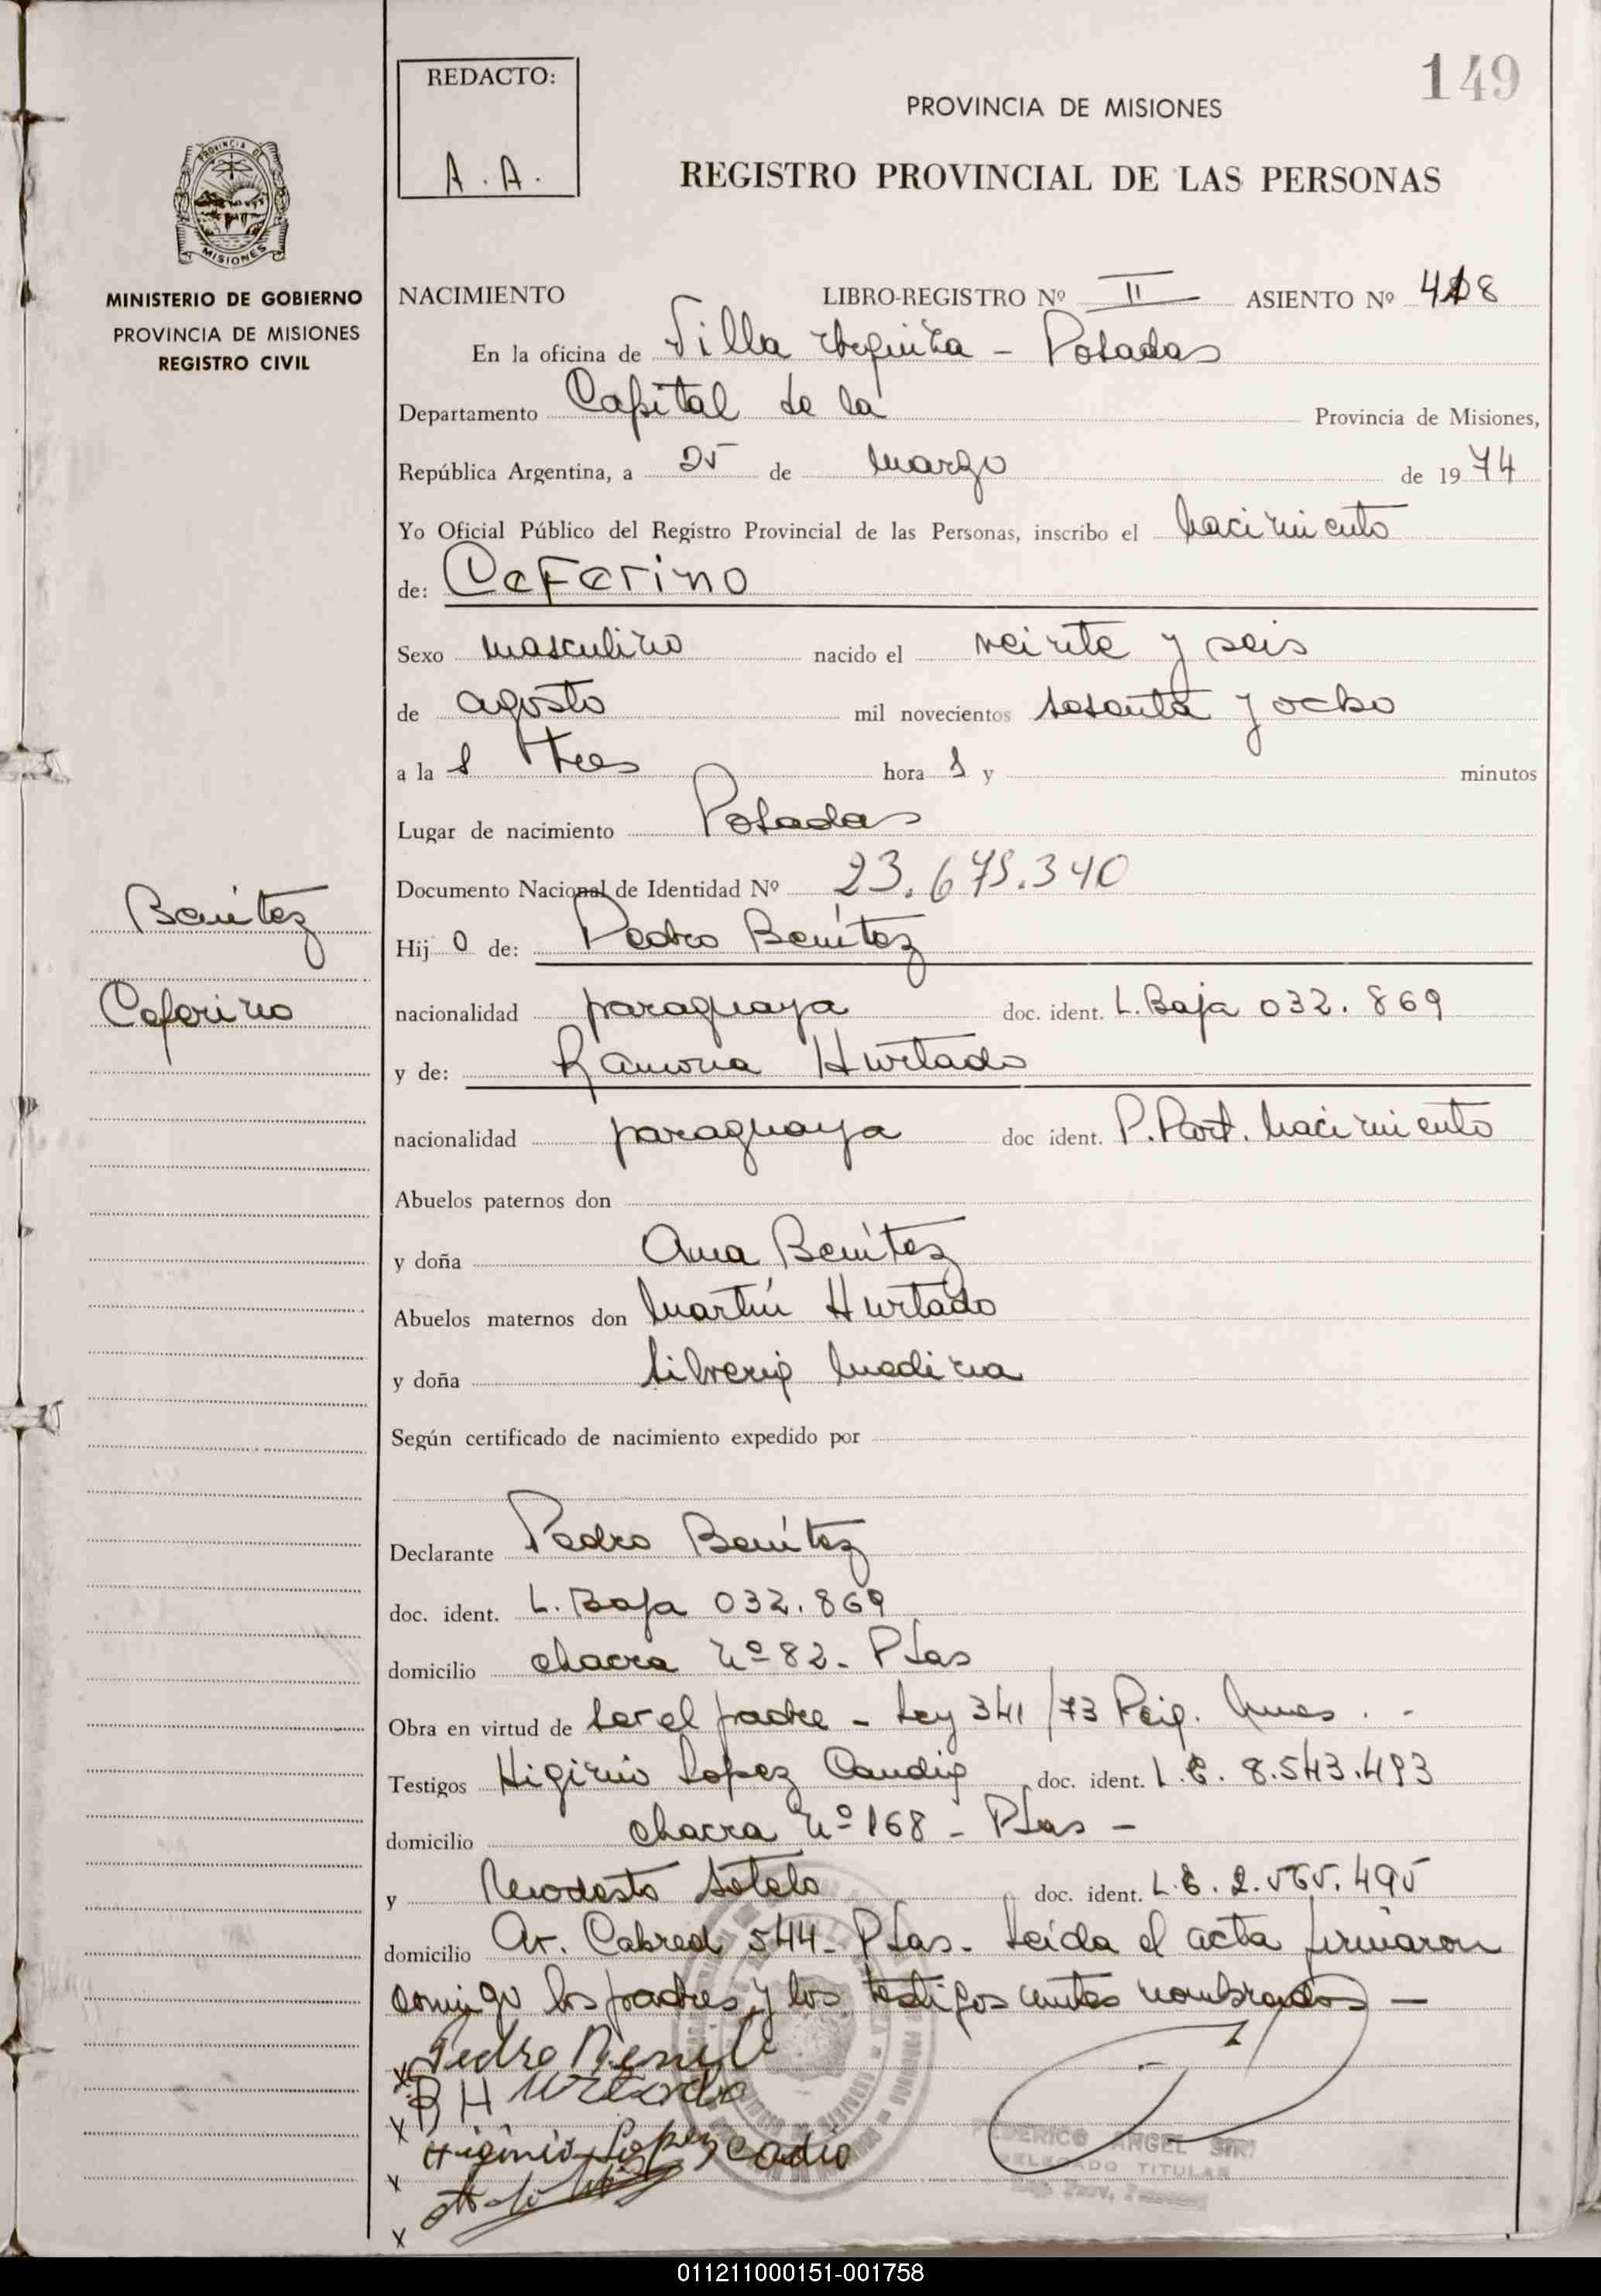 149
REDACTO:
A.A.
PROVINCIA DE MISIONES
REGISTRO PROVINCIAL DE LAS PERSONAS
PROVINCIA DE
MISIONES
MINISTERIO DE GOBIERNO
PROVINCIA DE MISIONES
REGISTRO CIVIL
NACIMIENTO LIBRO-REGISTRO Nº II ASIENTO Nº
En la oficina de Villa Urquiza - Posadas
Departamento Capital de la Provincia de Misiones,
República Argentina, a 25 de marzo de 1974
Yo Oficial Público del Registro Provincial de las Personas, inscribo el nacimiento
de: Ceferino
Sexo masculino nacido el veinte y seis
de agosto mil novecientos sesenta y ocho
a la s tres hora s y minutos
Lugar de nacimiento Posadas
Documento Nacional de Identidad Nº 23.675.340
Benítez
Hij o de: Pedro Benítez
Ceferino
nacionalidad paraguaya doc. ident. L. Baja 032.869
y de: Ramona Hurtado
nacionalidad paraguaya doc ident. P. Part. nacimiento
Abuelos paternos don
y doña Ana Benítez
Abuelos maternos don Martín Hurtado
y doña Silveria Medina
Según certificado de nacimiento expedido por
Declarante Pedro Benítez
doc. ident. L. Baja 032.869
domicilio chacra nº 82 - Pdas
Obra en virtud de ser el padre - Ley 341/73
Testigos Higinio Lopez doc. ident. L.E. 8.543.493
domicilio chacra nº 168 - Pdas -
y Modesto Sotelo doc. ident. L.E. 2.565.495
domicilio Av. Cabred 544 - Pdas. Leída el acta firmaron
conmigo los padres y los testigos antes nombrados -
x Pedro Benit
x R Hurtado
x Higinio Lopez
x
FEDERICO ANGEL SIRI
DELEGADO TITULAR
011211000151-001758